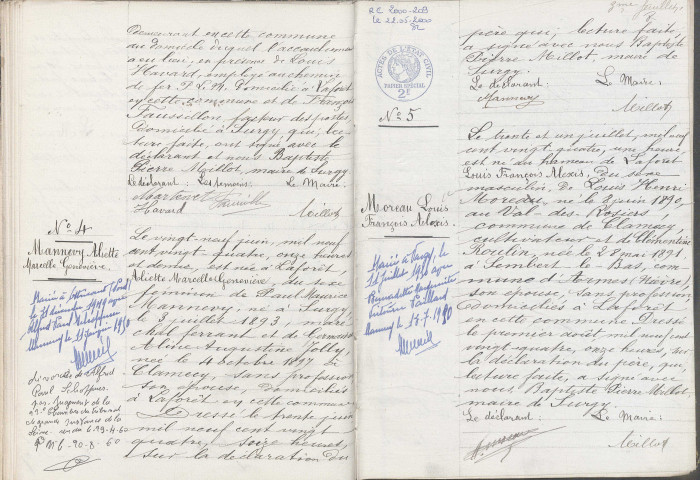 Demeurant en cette commune
au domicile duquel l'accouchement
a eu lieu, en présence de Louis
Havard, employé au chemin
de fer P.L.M. Domicilié à Laforêt
en cette commune et de François
Faussillon, facteur des postes
Domicilié à Surgy, qui, lec-
ture faite, ont signé avec le
déclarant et nous Baptiste
Pierre Millot, maire de Surgy
Le déclarant: Les témoins: Le Maire:
Havard
Millot
N° 4
Mannevy Aliette
Marcelle Geneviève.
Mariée à
le 31 décembre 1949 avec
Alfred Paul
Divorcée d'Alfred
Paul
par jugement de la
Chambre du tribunal
de grande instance de la
Seine rendu le 29-4-60
20-8-60
Le vingt-neuf juin, mil neuf
cent vingt-quatre, onze heures
et demie, est née à Laforêt,
Aliette Marcelle Geneviève, du sexe
féminin de Paul Maurice
Mannevy, né à Surgy,
le 3 juillet 1893, maré-
chal ferrant et de Germaine
Aline Augustine Jolly,
née le 4 octobre 1897 à
Clamecy, sans profession
son épouse, Domiciliés
à Laforêt en cette commune
Dressé le trente juin
mil neuf cent vingt
quatre, seize heures,
sur la déclaration du
RC 2000-203
le 22.05.2000
ACTES DE L'ETAT CIVIL
PAPIER SPECIAL
2F
N° 5
Moreau Louis
François Alexis.
Marié à Surgy le
Bernadette
père qui, lecture faite,
a signé avec nous Baptiste
Pierre Millot, maire de
Surgy.
Le déclarant: Le Maire:
Mannevy Millot
Le trente et un juillet, mil neuf
cent vingt quatre, une heure,
est né au hameau de Laforêt
Louis François Alexis, Du sexe
masculin, de Louis Henri
Moreau, né le 8 juin 1890,
au Val-des-Rosiers,
commune de Clamecy,
cultivateur et de Clémentine
Roulin, née le 28 mai 1891
à Sembert le Bas, com-
mune d'Armes (Nièvre)
son épouse, sans profession
Domiciliés à Laforêt
en cette commune. Dressé
le premier août mil neuf cent
vingt-quatre, onze heures, sur
la déclaration du père, qui,
lecture faite, a signé avec
nous Baptiste Pierre Millot,
maire de Surgy.
Le déclarant: Le Maire:
Millot